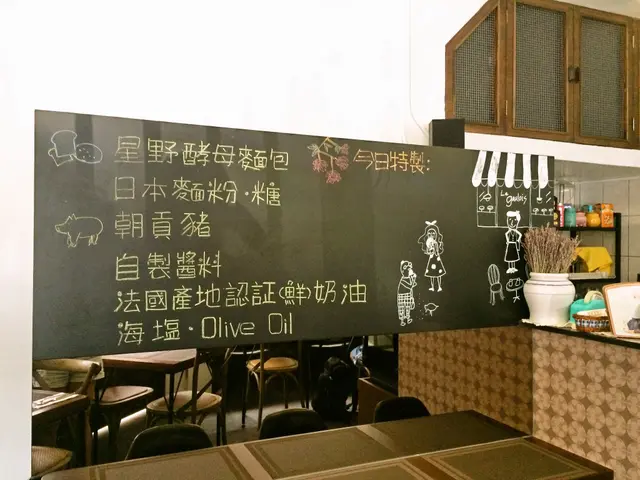 星野酵母麵包
日本麵粉·糖
朝貢豬
自製醬料
法國產地認証(鮮)奶油
海塩·Olive Oil
今日特製: